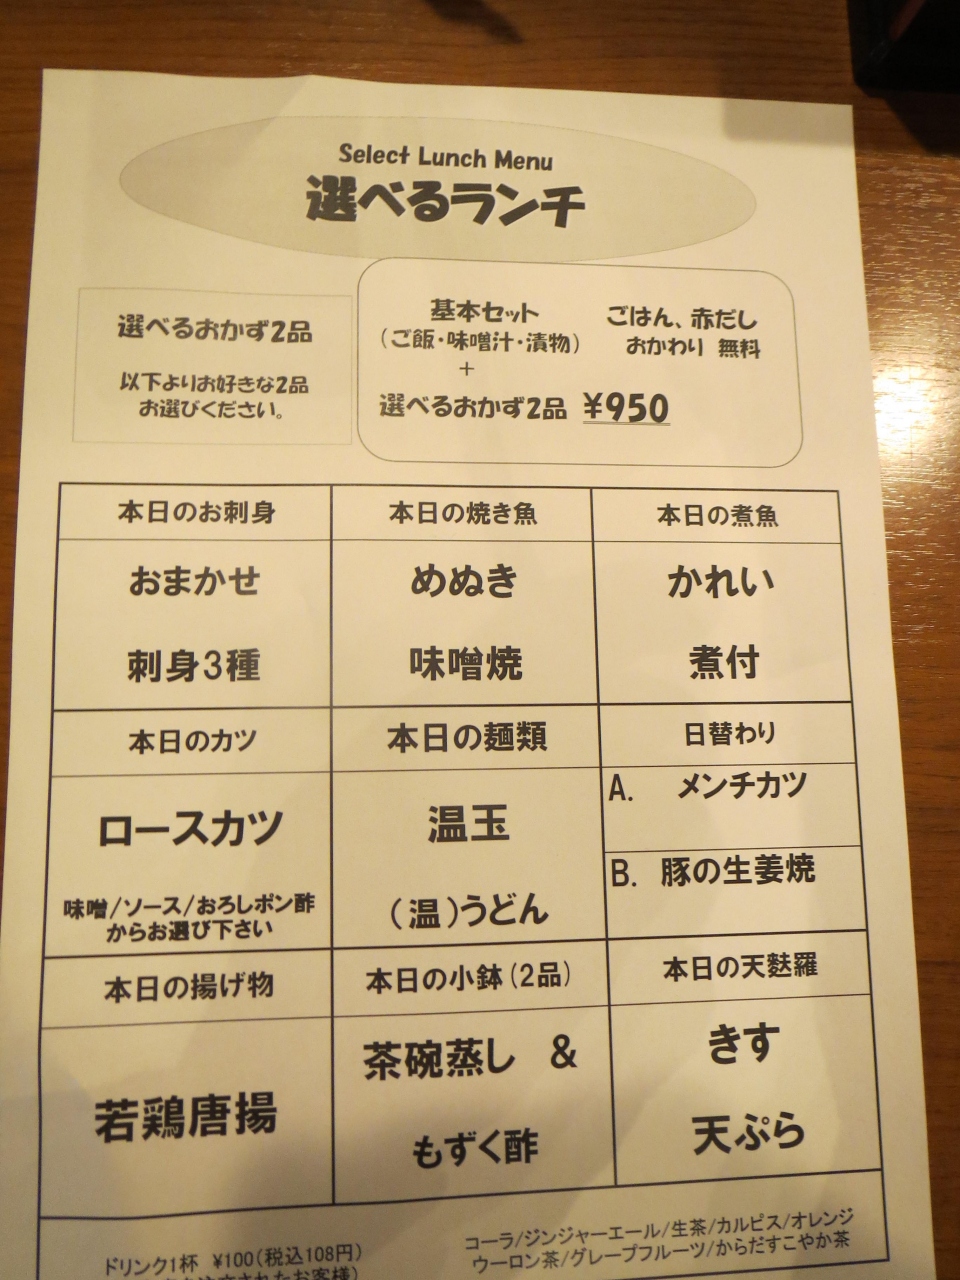 Select Lunch Menu
選べるランチ
選べるおかず2品
以下よりお好きな2品
お選びください。
基本セット
(ご飯・味噌汁・漬物)
+
選べるおかず2品 ¥950
ごはん、赤だし
おかわり 無料
本日のお刺身
おまかせ
刺身3種
本日の焼き魚
めぬき
味噌焼
本日の煮魚
かれい
煮付
本日のカツ
ロースカツ
味噌/ソース/おろしポン酢
からお選び下さい
本日の麺類
温玉
(温)うどん
日替わり
A. メンチカツ
B. 豚の生姜焼
本日の揚げ物
若鶏唐揚
本日の小鉢(2品)
茶碗蒸し &
もずく酢
本日の天麩羅
きす
天ぷら
ドリンク1杯 ¥100(税込108円)
注文されたお客様)
コーラ/ジンジャーエール/生茶/カルピス/オレンジ
ウーロン茶/グレープフルーツ/からだすこやか茶